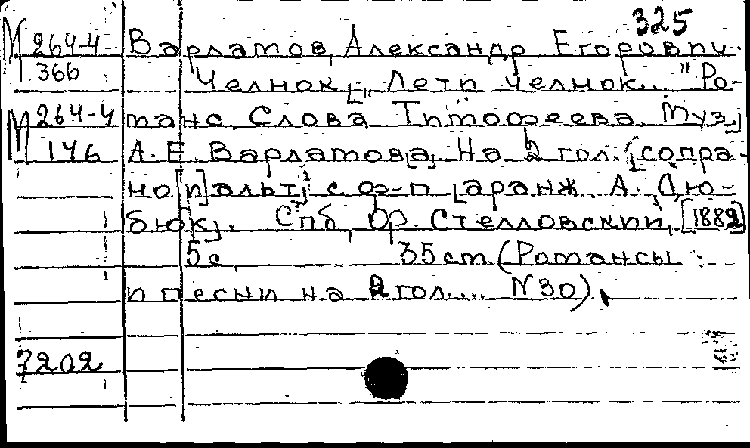 325
М 264-4 Варламов, Александр Егорович.
366 Челнок. [„Лети челнок... "Ро-
М 264-4 манс. Слова Тимофеева. Муз.]
146 А. Е. Варламов[а]. На 2 гол. [сопра-
но [и] альт] с ф-п [аранж. А. Дю-
бюк]. Спб, Ф. Стелловский, [1882]
5 с 35 см (Романсы
и песни на 2 гол.... N30).
7202